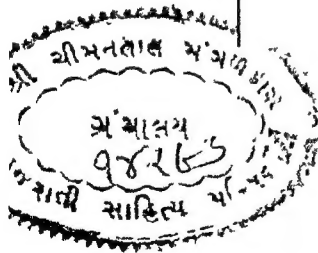 શ્રી ચીમનલાલ મંગળદાસ
ગ્રંથાલય
૧૪૨૬૭
ગુજરાતી સાહિત્ય પરિષદ